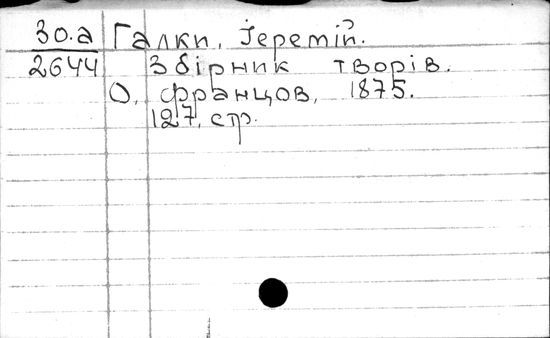 30.а Галки, Їеремій.
2644 Збірник творів.
О, Францов, 1875.
127, стр.